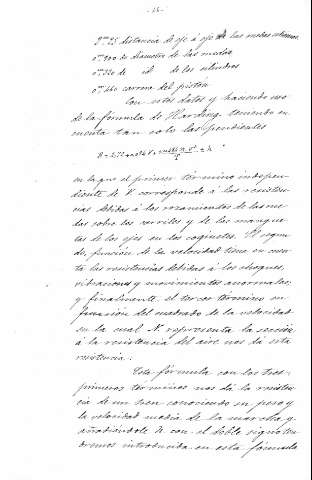 -15-
2,m25 distancia de eje á eje de las ruedas extremas.
0,m900 de diámetro de las ruedas
0,m320 de id. de los cilindros
0,m460 carrera del pistón.
Con estos datos y haciendo uso
de la fórmula de Harding teniendo en
cuenta tan solo las pendientes
en la que el primer término indepen-
diente de V corresponde á las resisten-
cias debidas á los rozamientos de las rue-
das sobre los carriles y de los mangue-
tas de los ejes en los cojinetes. El segun-
do, función de la velocidad tiene en cuen-
ta las resistencias debidas á los choques,
vibraciones y movimientos anormales;
y finalmente, el tercer término en
función del cuadrado de la velocidad
en la cual N representa la sección
á la resistencia del aire nos dá esta
resistencia.
Esta fórmula con los tres
primeros términos nos dá la resisten-
cia de un tren conociendo su peso y
la velocidad media de la marcha, y
añadiéndole de con el doble signo ten-
dremos introducida en esta fórmula